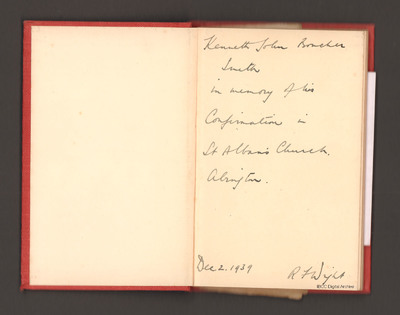 Kenneth John Boucher
Smith
in memory of his
Confirmation in
St Alban's Church.
Abington.
Dec 2. 1939
R F Wight
Digital Archive